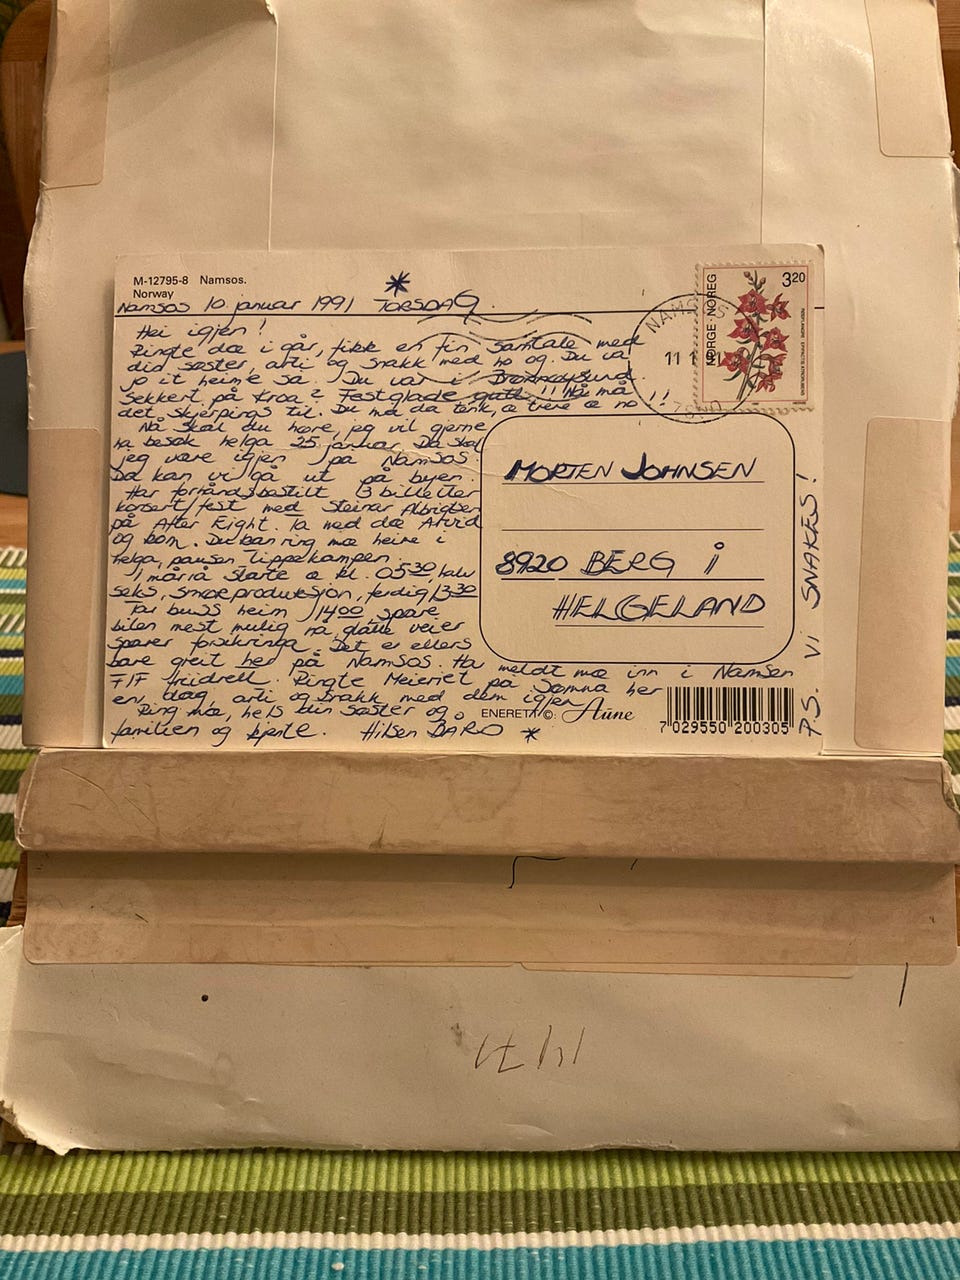 M-12795-8 Namsos.
Norway
Namsos 10 januar 1991 TORSDAG.
Hei igjen!
Ringte dæ i går, fikk en fin samtale med
din søster, arti og snakk med ho og. Du va
jo it heime sa. Du var i Brønnøysund.
Sekkert på kroa? Festglade gutt!! Nå må
det skjerpings til. Du må da tenk, a trene a no!!
Nå skal du høre, jeg vil gjerne
ha besøk helga 25 januar. Da skal
jeg være igjen på Namsos.
Da kan vi gå ut på byen.
Har forhåndsbestilt 3 billetter
konsert/fest med Steinar Albrigtsen
på After Eight. Ta med dæ Arvid
og kom. Du kan ring mæ heime i
helga, pausen Tippekampen.
I måra starte æ kl. 05 30, halv
seks, smørproduksjon, ferdig 13 30
Tar buss heim 14 00, spare
bilen mest mulig nå, glatte veier
sparer forsikringa. Det er ellers
bare greit her på Namsos. Ha meldt mæ inn i Namsen
FIF friidrett. Ringte Meieriet på Sømna her
en dag, arti og snakk med dem igjen
Ring mæ, hels din søster og
familien og kjente. Hilsen BÅRD
NAMSOS
11
NORGE·NOREG
3 20
MORTEN JOHNSEN
8920 BERG i
HELGELAND
P.S. Vi SNAKES!
ENERETT ©: Aune
7 029550 200305